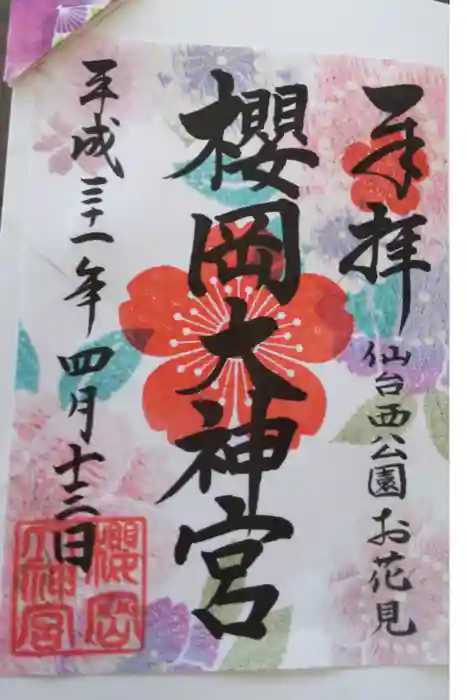 奉拝
仙台西公園お花見
櫻岡大神宮
平成三十一年四月十三日
櫻岡
大神宮